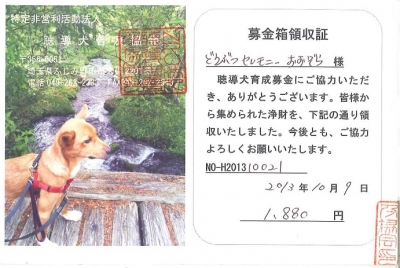 特定非営利活動法人
聴導犬育成協会
募金箱領収証
どうぶつセレモニー おおぞら 様
聴導犬育成募金にご協力いただ
き、ありがとうございます。皆様か
ら集められた浄財を、下記の通り領
収いたしました。今後とも、ご協力
よろしくお願いいたします。
NO-H2013 10021
2013年10月9日
1,880 円